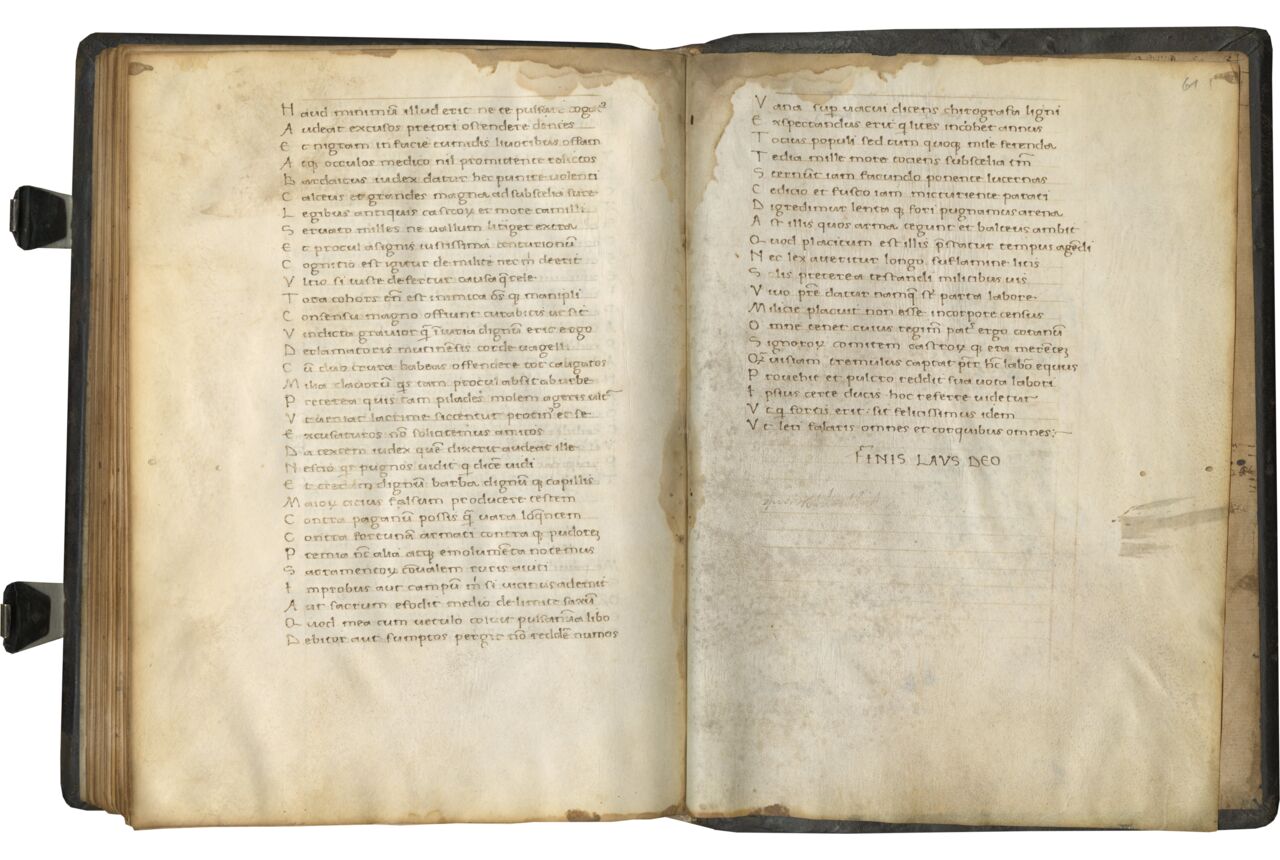 H aud minimũ illud erit ne te pulsare togatꝰ
A udeat excusos pretori ostendere dentes
E t nigram in facie tumidis liuoribus offam
A tq; occulos medico nil promittente relictos
B ardaicus iudex datur hec punire uolenti
C alceus et grandes magna ad subselia sure
L egibus antiquis castroꝝ et more camilli
S eruato milles ne uallum litiget extra
E t procul a signis iustissima centurionũ
C ognitio est igitur de milite nec m̃ deerit
V ltio si iuste defertur causa q̃rele
T ota cohors tñ est inimica õs q; manipli
C onsensu magno offiunt curabitis ut sit
V indicta grauior q̃ iniuria dignũ erit ergo
D eclamatoris mutinẽsis corde uagelli
C ũ duo crura habeas offendere tot caligatos
M ilia clauorũ q̃s tam procul absit ab urbe
P reterea quis tam pilades molem aggeris ult̃
V t ueniat lacrime siccentur protinꝰ et se
E xcusaturos nõ solicitemus amicos
D a testem iudex quẽ dixerit audeat ille
N escio q̃s pugnos uidit q; dicẽ uidi
E t credam dignũ barba dignũ q; capillis
M aioꝝ citius falsum producere testem
C ontra paganũ possis q̃ uera loq̃ntem
C ontra fortunã armati contra q; pudorẽ
P remia nc̃ alia atq; emolumẽta notemus
S acramentoꝝ cõualem ruris auiti
I mprobus aut campũ m̃ si uicinus ademit
A ut sacrum efodit medio de limite saxũ
Q uod mea cum uetulo coluit puls annua libo
D ebitor aut sumptos pergit nõ reddẽ numos
61
V ana sup̱ uacui dicens chirografa ligni
E xspectandus erit q̇ lites incohet annus
T otius populi sed tum quoq; mile ferenda
T edia mille more tociens subselia tm̃
S ternũt iam facundo ponente lucernas
C edicio et fusco iam micturiente parati
D igredimur lenta q; fori pugnamus arena
A st illis quos arma tegunt et balteus ambit
Q uod placitum est illis p̃statur tempus agẽdi
N ec lex aueritur longo suflamine litis
S olis preterea testandi militibus uis
V iuo prẽ datur namq; q̃ st̃ parta labore
M ilicie placuit non esse in corpore census
O mne tenet cuius regim̃ pat̃ ergo coranũ
S ignoroꝝ comitem castroꝝ q; era merentẽ
Q̃ uis iam tremulus captat pr̃ hc̃ labo equus
P rouehit et pulcro reddit sua uota labori
I psius certe ducis hoc referre uidetur
V t q̇ fortis erit sit felicissimus idem
V t leti falaris omnes et torquibus omnes
FINIS LAVS DEO